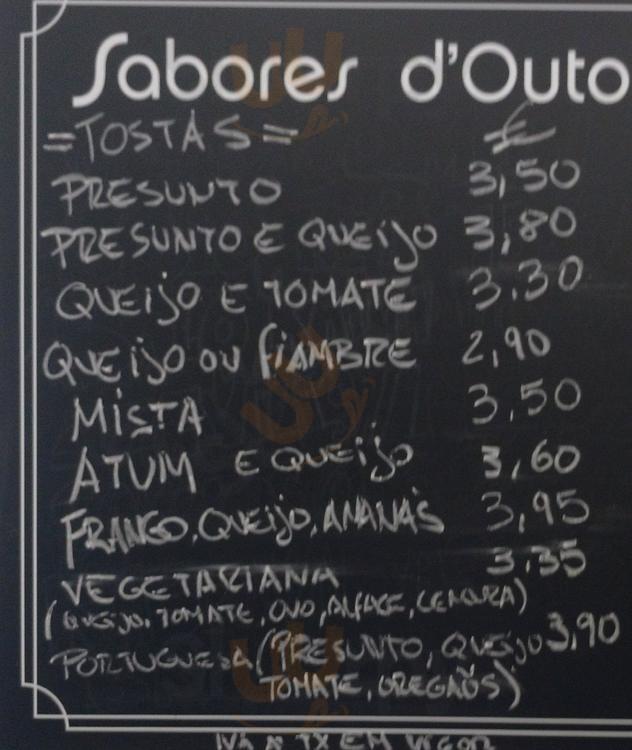 Sabores d'Outo
=TOSTAS= €
PRESUNTO 3,50
PRESUNTO E QUEIJO 3,80
QUEIJO E TOMATE 3.30
QUEIJO OU FIAMBRE 2,90
MISTA 3,50
ATUM E QUEIJO 3,60
FRANGO, QUEIJO, ANANÁS 3,95
VEGETARIANA 3.35
(QUEIJO, TOMATE, OVO, ALFACE, CENOURA)
PORTUGUESA (PRESUNTO, QUEIJO 3,90
TOMATE, OREGÃOS)
IVA À TX EM VIGOR